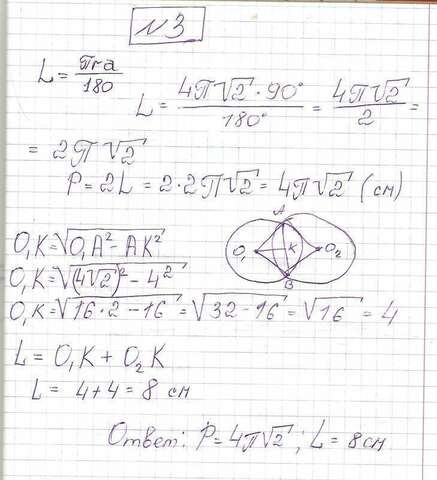 №3
L = πra/180
L = 4π√2 · 90°/180° = 4π√2/2 =
= 2π√2
P = 2L = 2·2π√2 = 4π√2 (см)
A
O₁ K O₂
B
O₁K = √O₁A² - AK²
O₁K = √(4√2)² - 4²
O₁K = √16·2 - 16 = √32 - 16 = √16 = 4
L = O₁K + O₂K
L = 4 + 4 = 8 см
Ответ: P = 4π√2; L = 8 см